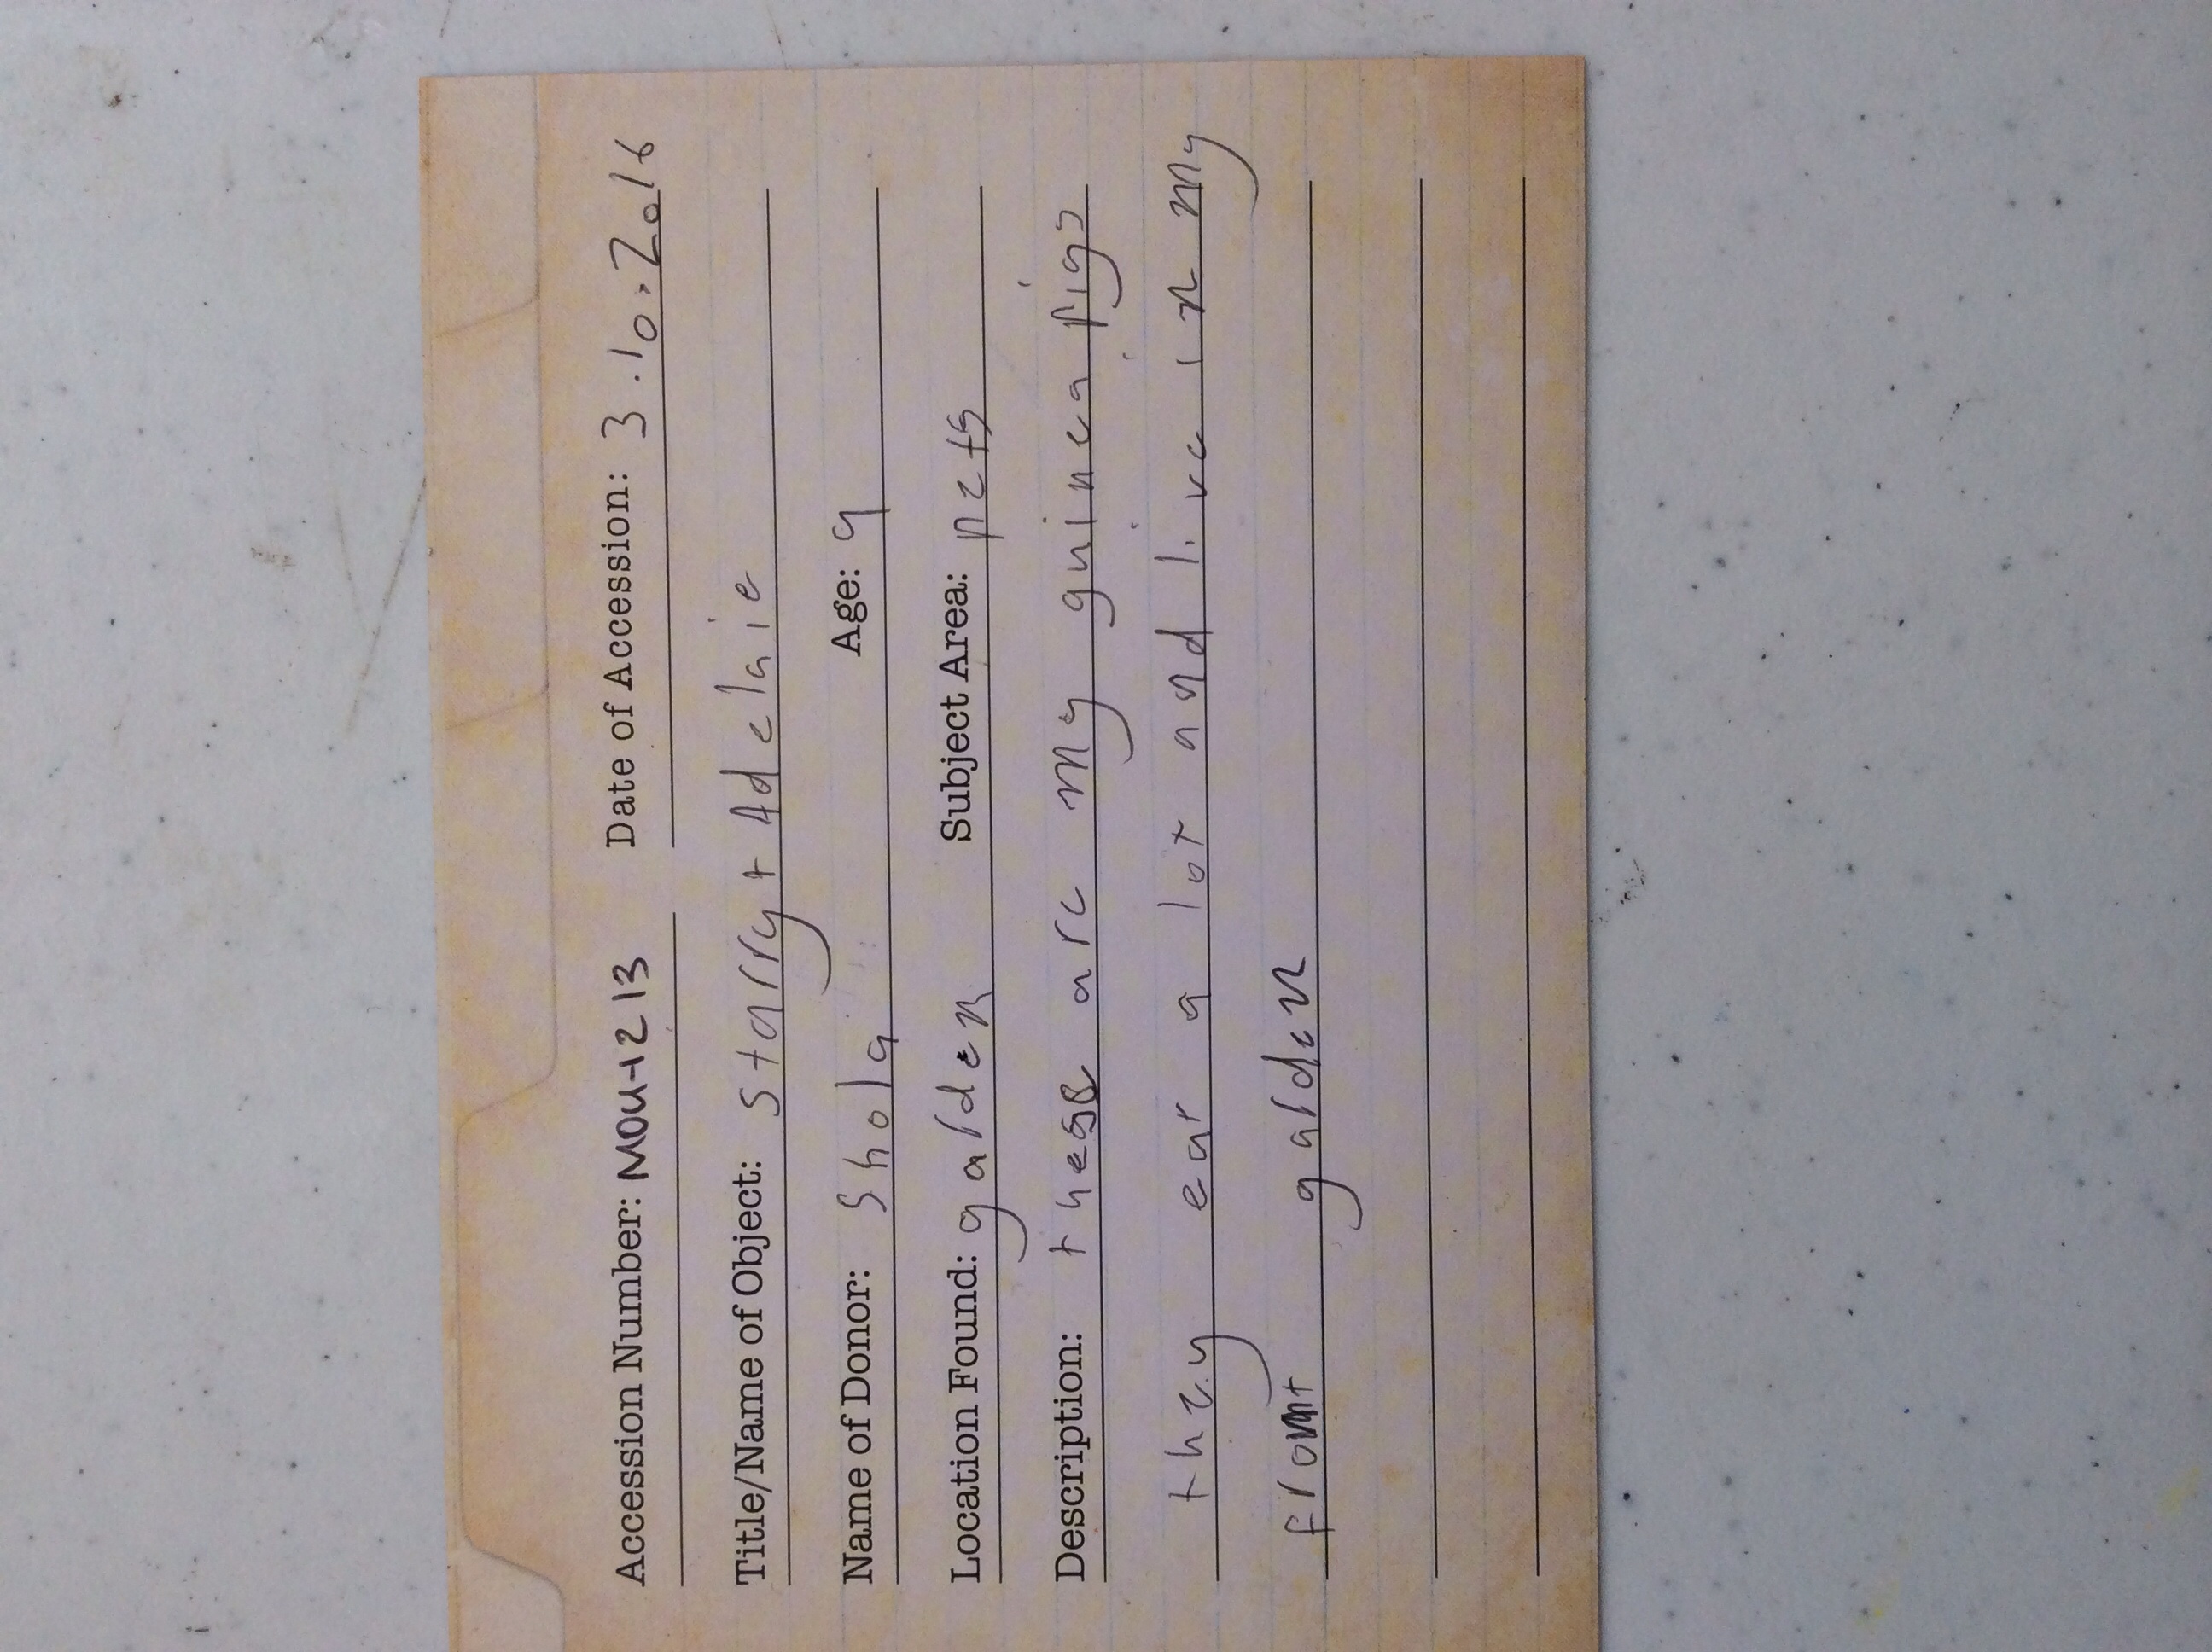 Accession Number: MOU-1213 Date of Accession: 3.10.2016
Title/Name of Object: starry + Adelaie
Name of Donor: Shola Age: 9
Location Found: garden Subject Area: pets
Description: these are my guinea pigs
they eat a lot and live in my
front garden